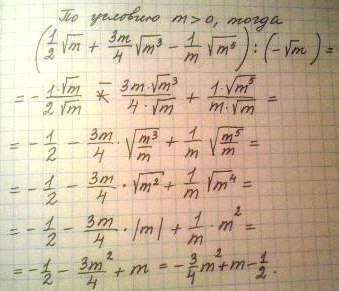 По условию m > 0, тогда
(1/2 √m + 3m/4 √m³ − 1/m √m⁵) : (−√m) =
= − 1·√m/2√m − 3m·√m³/4·√m + 1·√m⁵/m·√m =
= − 1/2 − 3m/4 · √(m³/m) + 1/m √(m⁵/m) =
= − 1/2 − 3m/4 · √m² + 1/m √m⁴ =
= − 1/2 − 3m/4 · |m| + 1/m · m² =
= − 1/2 − 3m²/4 + m = − 3/4 m² + m − 1/2.